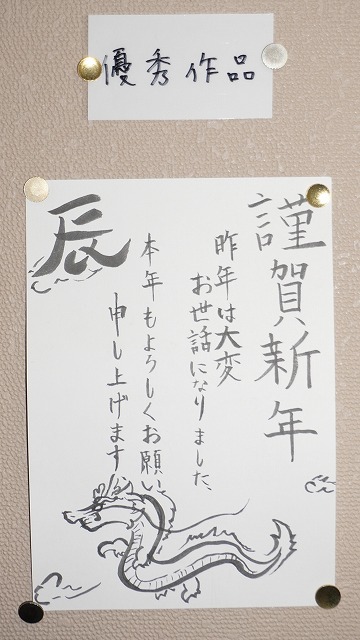 優秀作品
謹賀新年
昨年は大変
お世話になりました
本年もよろしくお願い
申し上げます
辰